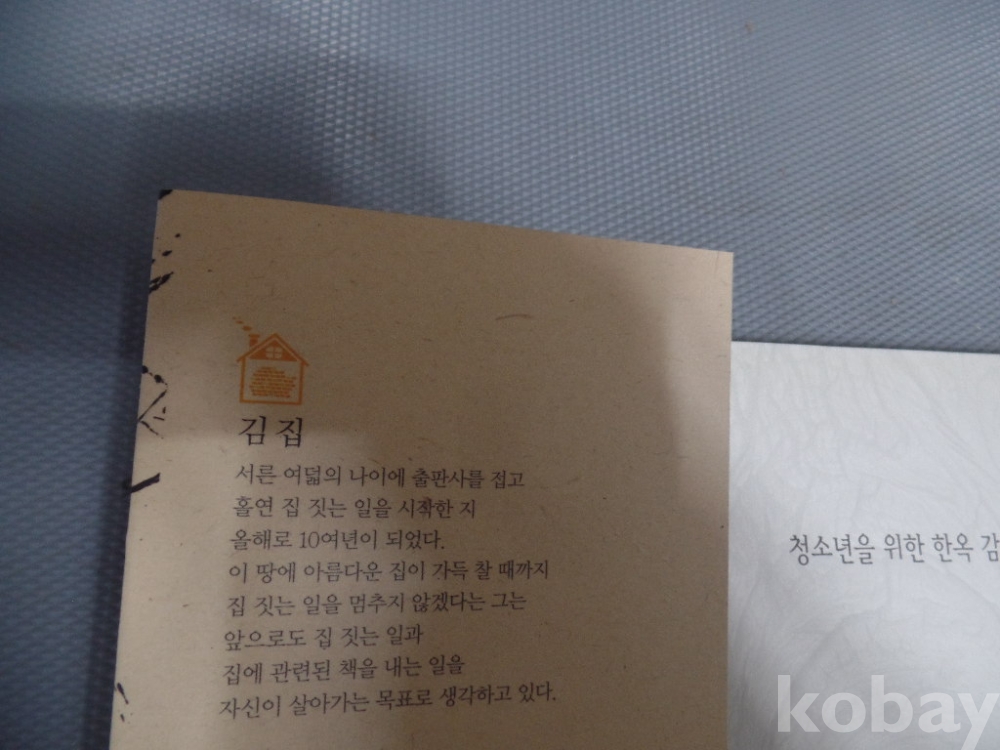 김집
서른 여덟의 나이에 출판사를 접고
홀연 집 짓는 일을 시작한 지
올해로 10여년이 되었다.
이 땅에 아름다운 집이 가득 찰 때까지
집 짓는 일을 멈추지 않겠다는 그는
앞으로도 집 짓는 일과
집에 관련된 책을 내는 일을
자신이 살아가는 목표로 생각하고 있다.
청소년을 위한 한옥 감
kobay